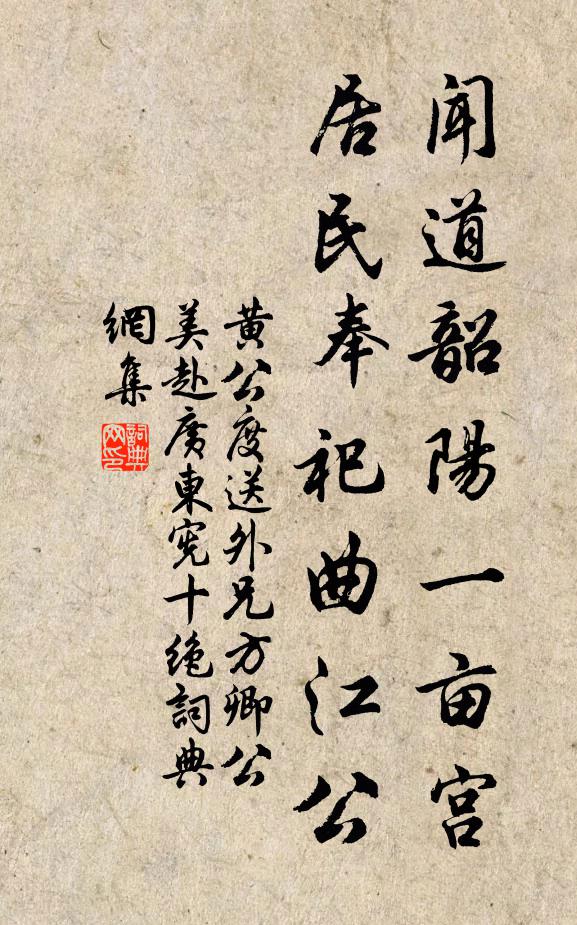 聞道韶陽一亩宫
居民奉祀曲江公
黄公度送外兄方卿公
美赴廣東宪十绝詞典
網集
詞典
网印